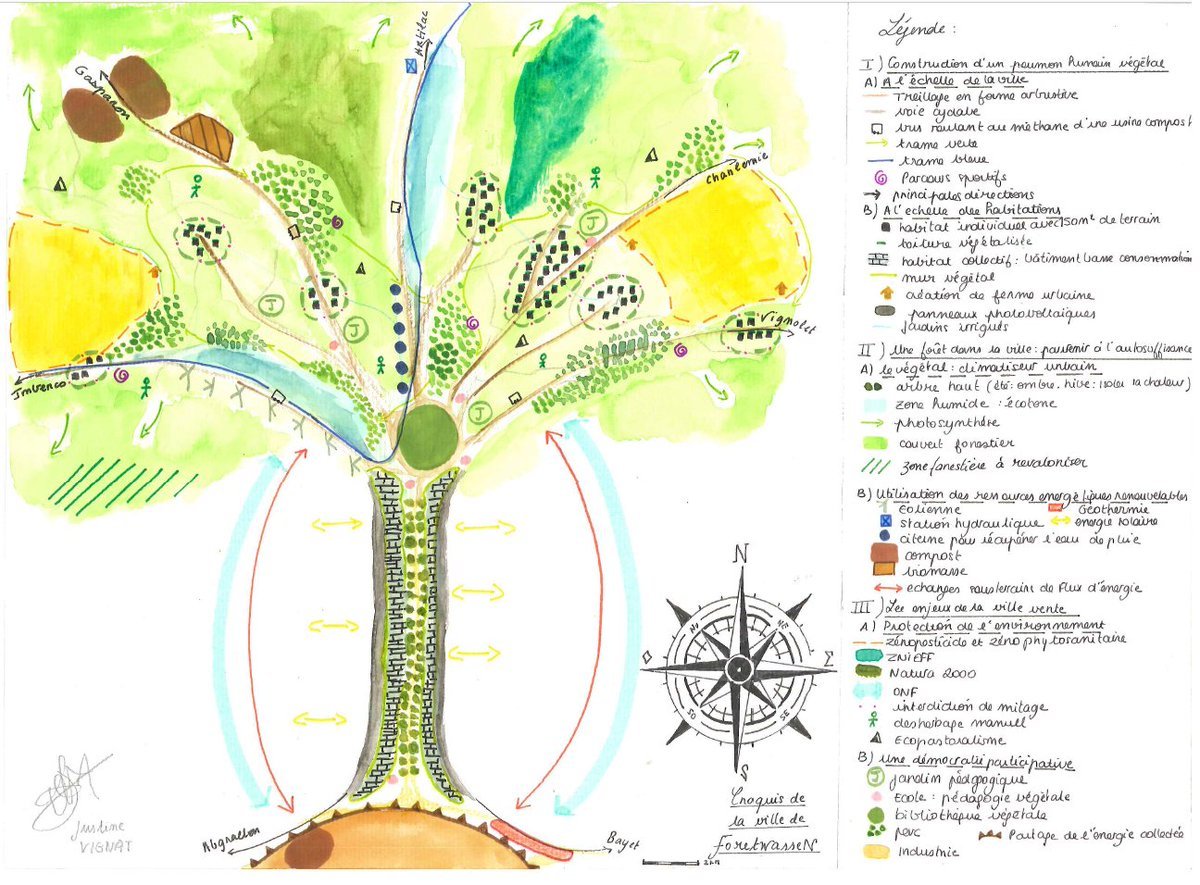 Gasparon
Matilac
Chantemie
Vignolet
Imbenco
J
J
J
J
Justine
VIGNAT
Abgnallon
Bayet
N
NO
NE
O
E
SO
SE
S
Croquis de
la ville de
ForetwasseN
2 km
Légende :
I) Construction d'un poumon humain végétal
A) A l'échelle de la ville
Treillage en forme arbustive
voie cyclabe
bus roulant au méthane d'une usine compost
trame verte
trame bleue
Parcours sportifs
principales directions
B) A l'echelle des habitations
habitat individuel avec 150m² de terrain
toiture végétalisée
habitat collectif : bâtiment basse consommation
mur végétal
création de ferme urbaine
panneaux photovoltaïques
jardins irrigués
II) Une forêt dans la ville : parvenir à l'autosuffisance
A) le végétal : climatiseur urbain
arbre haut (été : ombre, hive : isoler la chaleur)
zone humide : écotone
photosynthère
couvert forestier
zone forestière à revaloriser
B) Utilisation des ressources energétiques renouvelables
Eolienne
Géothermie
station hydraulique
energie solaire
citerne pour récupérer l'eau de pluie
compost
biomasse
echanges souterrains de flux d'énergie
III) Les enjeux de la ville verte
A) Protection de l'environnement
zéropesticide et zéro phytosanitaire
ZNIEFF
Natura 2000
ONF
interdiction de mitage
desherbage manuel
Ecopastoralisme
B) Une démocratie participative
J
jardin pédagogique
Ecole : pédagogie végétale
bibliothèque végétale
parc
Partage de l'énergie collectée
Industrie